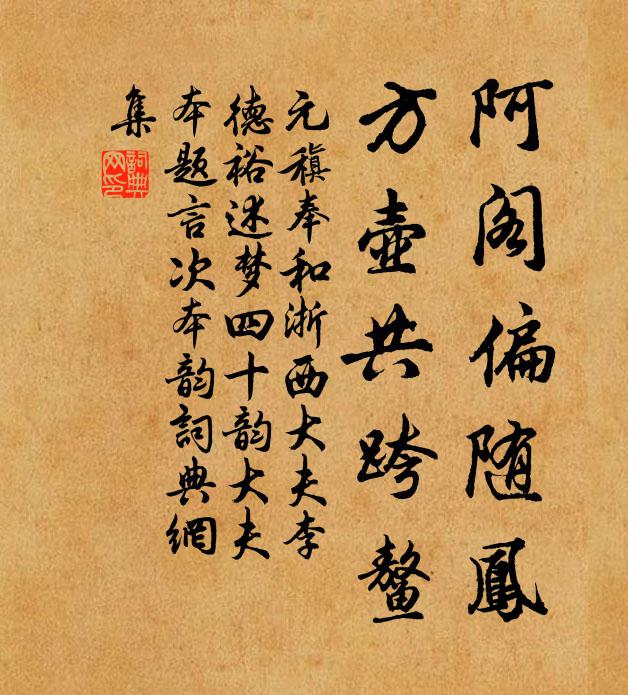 阿阁偏随鳳
方壺共跨鳌
元稹奉和浙西大夫李
德裕述梦四十韵大夫
本题言次本韵詞典網
集
詞典
网印